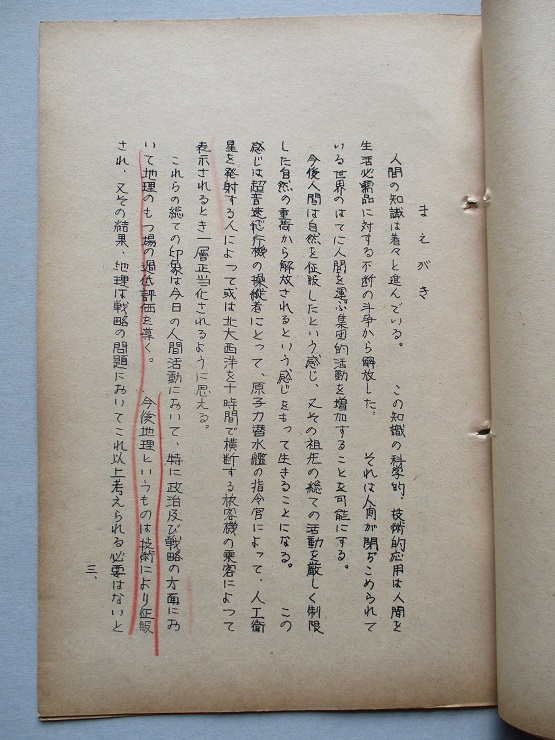 まえがき
人間の知識は着々と進んでいる。 この知識の科学的、技術的応用は人間を
生活必需品に対する不断の斗争から解放した。 それは人間が閉ぢこめられて
いる世界のはてに人間を運ぶ集団的活動を増加することを可能にする。
今後人間は自然を征服したという感じ、又その祖先の総ての活動を厳しく制限
した自然の重荷から解放されるという感じをもって生きることになる。 この
感じは超音速飛行機の操縦者にとって、原子力潜水艦の指令官によって、人工衛
星を発射する人によって或は北大西洋を十時間で横断する旅客機の乗客によって
表示されるとき一層正当化されるように思える。
これらの総ての印象は今日の人間活動において、特に政治及び戦略の方面にお
いて地理のもつ場の過低評価を導く。 今後地理というものは技術により征服
され、又その結果、地理は戦略の問題においてこれ以上考えられる必要はないと
三、